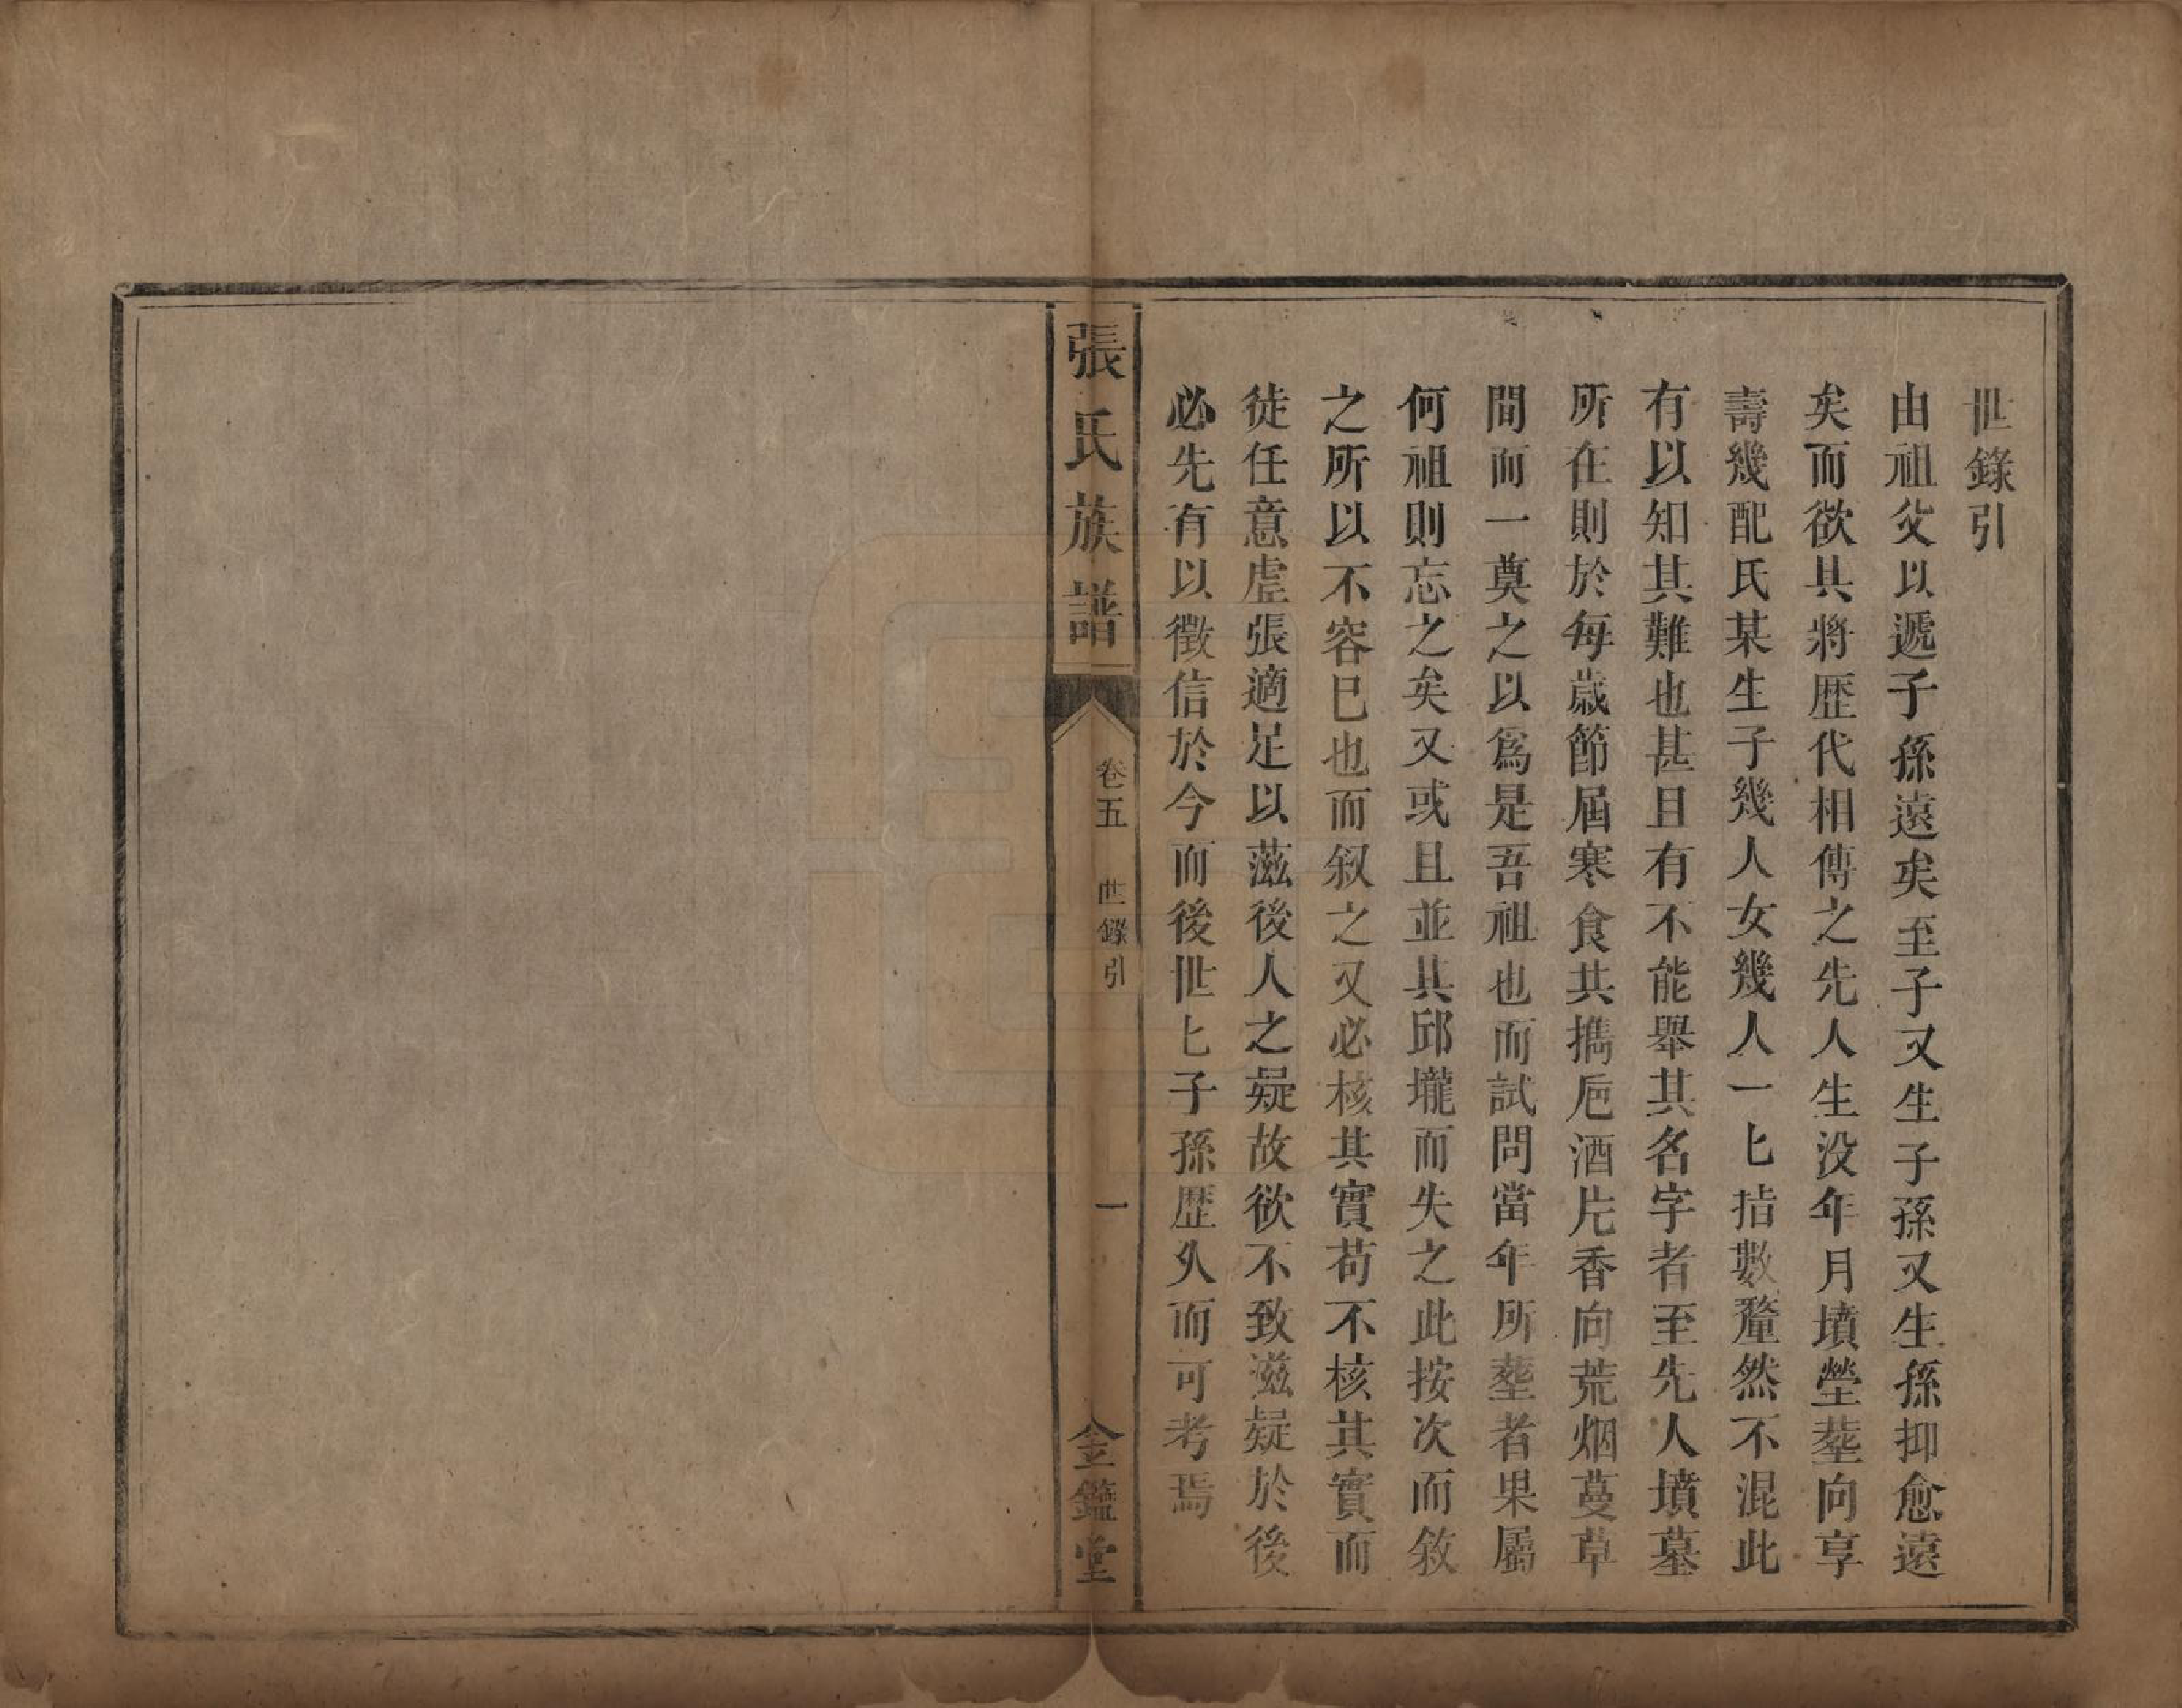 世錄引
由祖父以遞子孫遠矣至子又生子孫又生孫抑愈遠
矣而欲具將歴代相傳之先人生没年月墳塋塟向享
壽幾配氏某生子幾人女幾人一匕拈數釐然不混此
有以知其難也甚且有不能舉其名字者至先人墳墓
所在則於每歳節屆寒食共携卮酒片香向荒烟蔓草
間而一奠之以爲是吾祖也而試問當年所塟者果屬
何祖則忘之矣又或且並其邱壠而失之此按次而敘
之所以不容已也而叙之又必核其實苟不核其實而
徒任意虛張適足以滋後人之疑故欲不致滋疑於後
必先有以徵信於今而後世匕子孫歴久而可考焉
張氏族譜
卷五 世錄引
一
金鑑堂